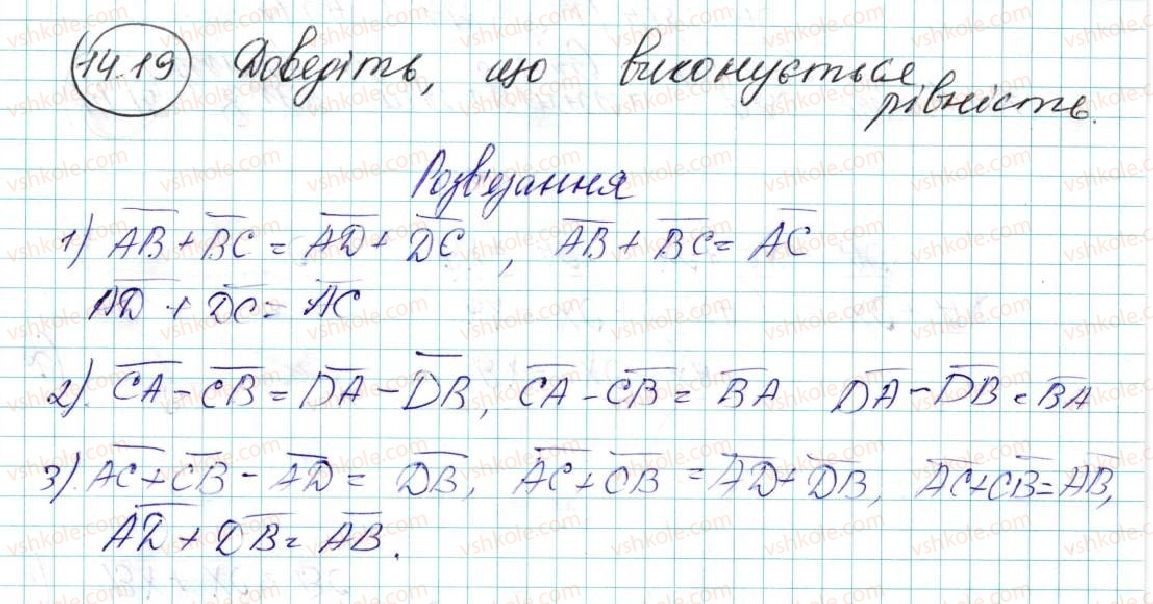 14.19 Доведіть, що виконується рівність.
Розв'язання
1) AB + BC = AD + DC, AB + BC = AC
AD + DC = AC
2) CA - CB = DA - DB, CA - CB = BA DA - DB = BA
3) AC + CB - AD = DB, AC + CB = AD + DB, AC + CB = AB,
AD + DB = AB.